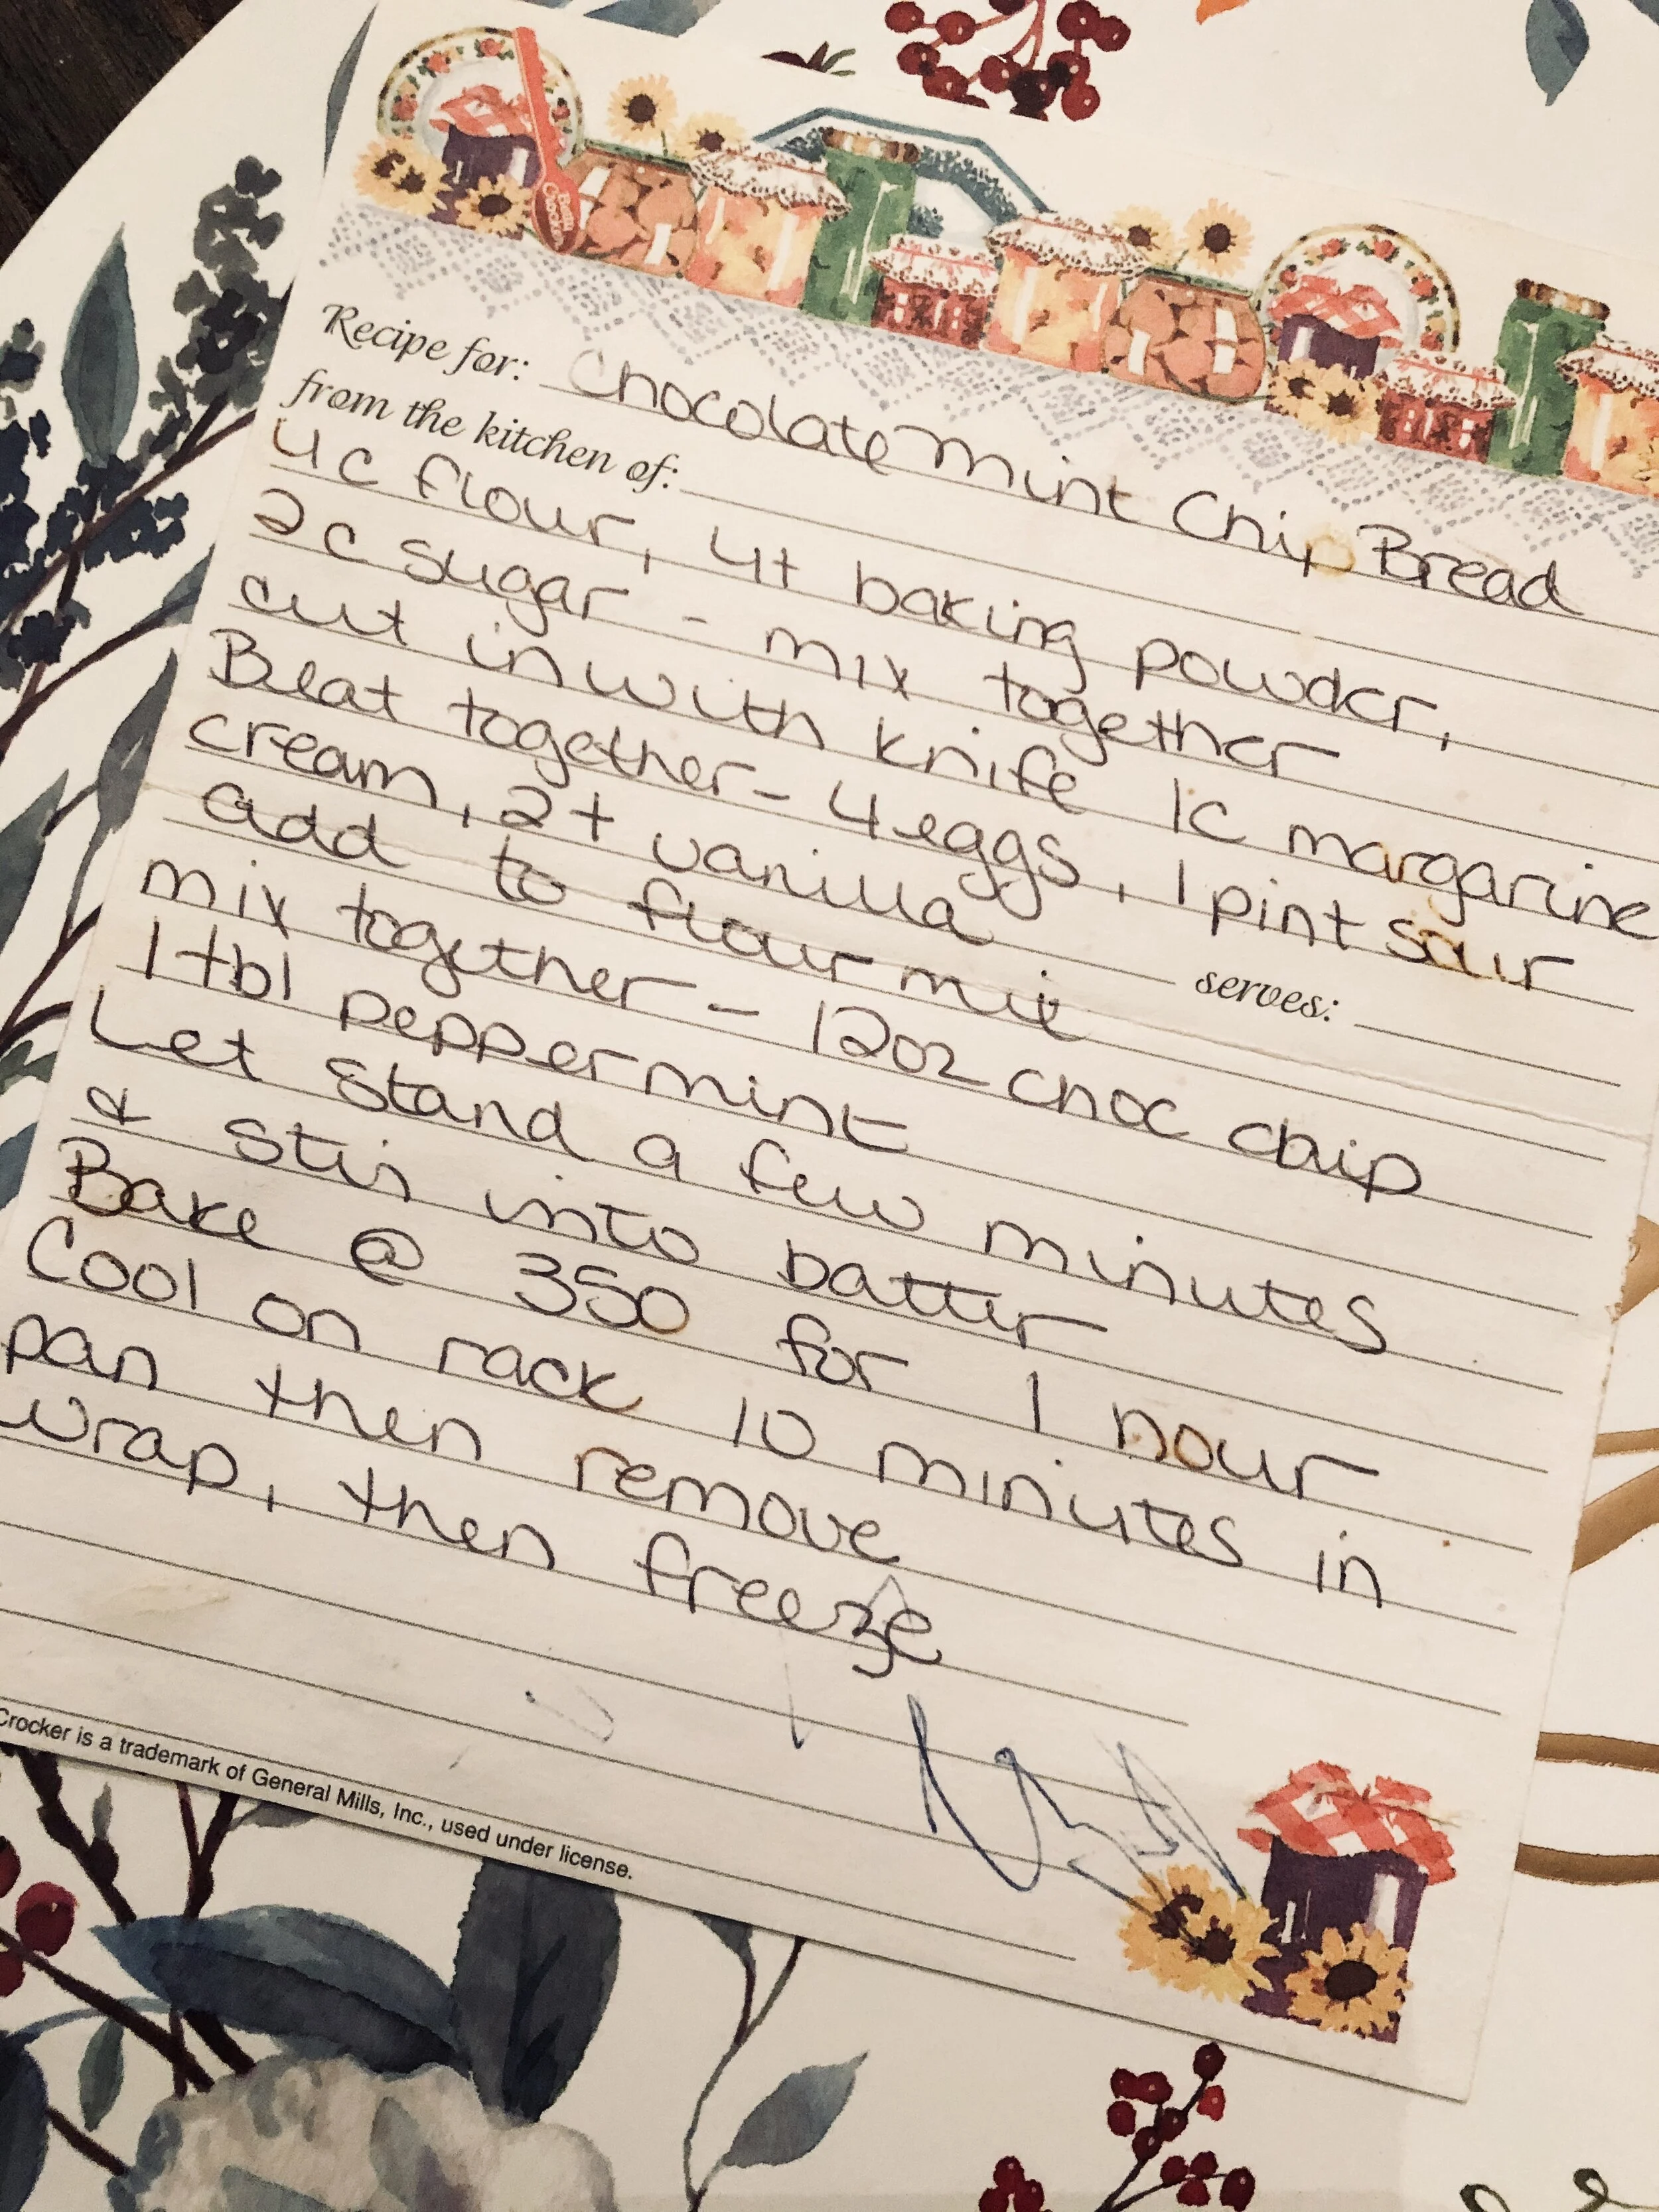 Betty Crocker
Recipe for: Chocolate Mint Chip Bread
from the kitchen of:
4c flour, 4t baking powder,
2c sugar - mix together
cut in with knife 1c margarine
Beat together - 4 eggs, 1 pint sour
cream, 2t vanilla
serves:
add to flour mix
mix together - 12oz choc chip
1 tbl peppermint
Let stand a few minutes
& stir into batter
Bake @ 350 for 1 hour
Cool on rack 10 minutes in
pan then remove
wrap, then freeze
Crocker is a trademark of General Mills, Inc., used under license.